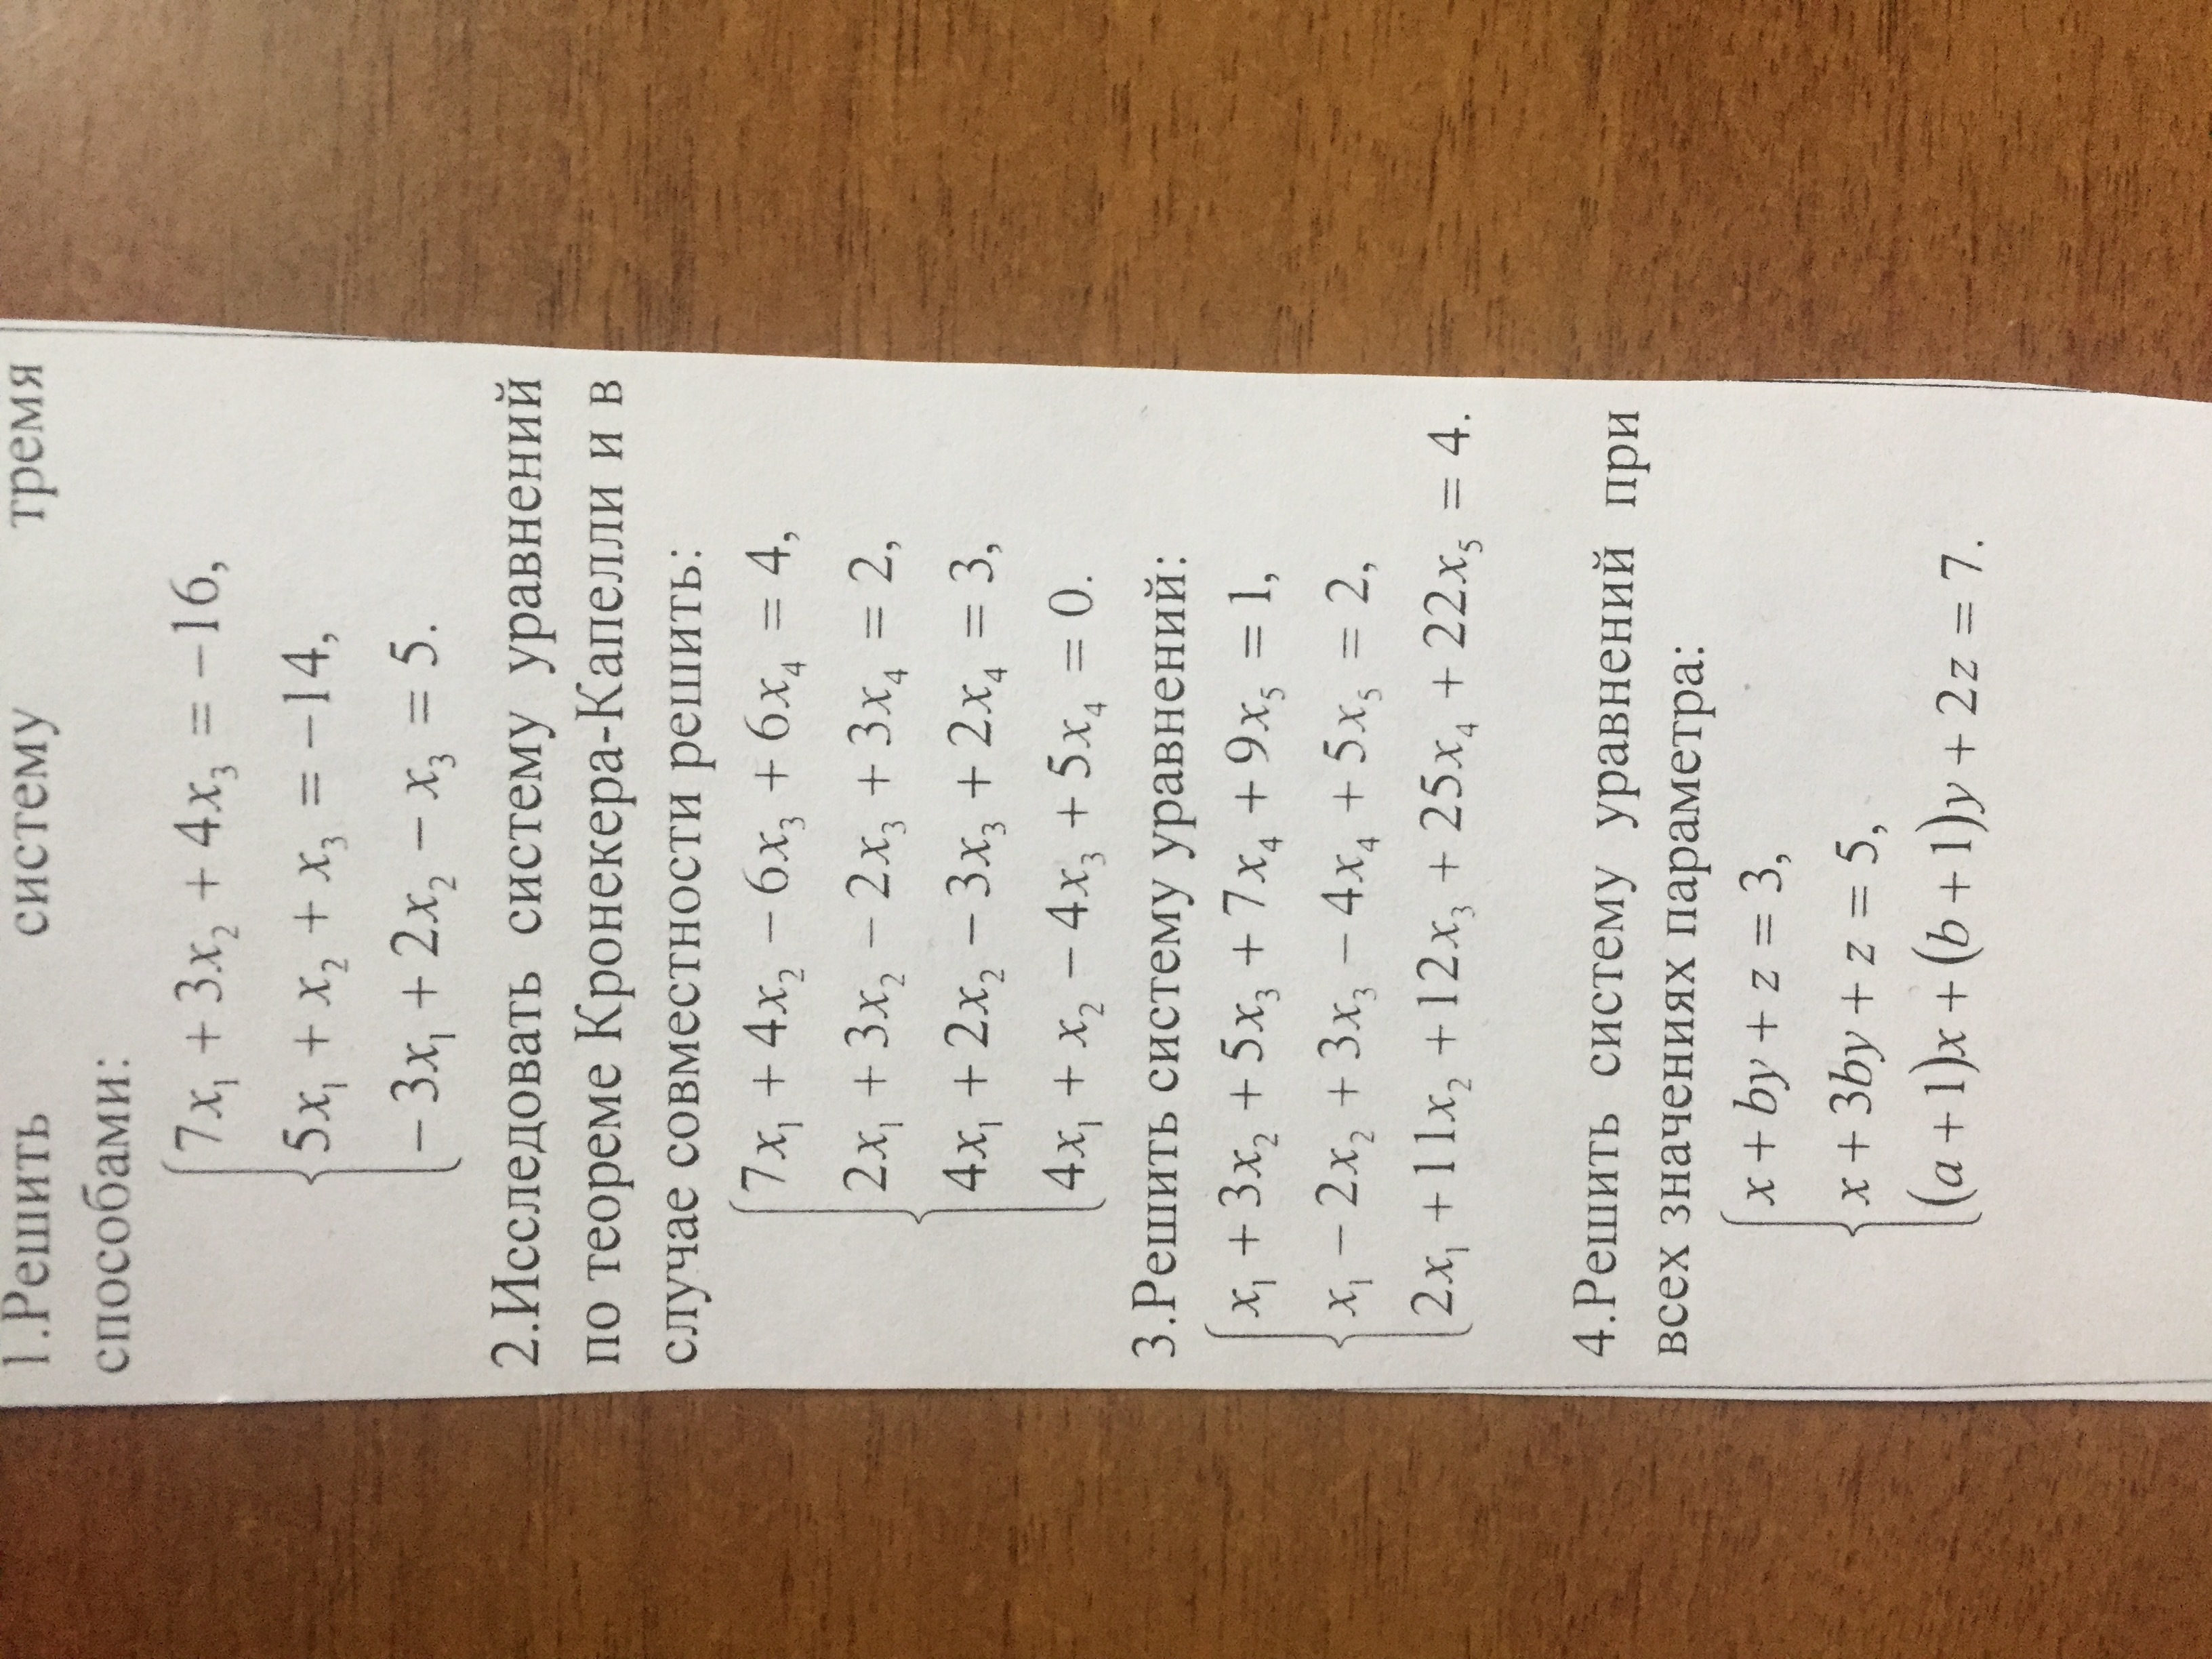 1.Решить систему тремя
способами:
7x₁ + 3x₂ + 4x₃ = −16,
5x₁ + x₂ + x₃ = −14,
− 3x₁ + 2x₂ − x₃ = 5.
2.Исследовать систему уравнений
по теореме Кронекера-Капелли и в
случае совместности решить:
7x₁ + 4x₂ − 6x₃ + 6x₄ = 4,
2x₁ + 3x₂ − 2x₃ + 3x₄ = 2,
4x₁ + 2x₂ − 3x₃ + 2x₄ = 3,
4x₁ + x₂ − 4x₃ + 5x₄ = 0.
3.Решить систему уравнений:
x₁ + 3x₂ + 5x₃ + 7x₄ + 9x₅ = 1,
x₁ − 2x₂ + 3x₃ − 4x₄ + 5x₅ = 2,
2x₁ + 11x₂ + 12x₃ + 25x₄ + 22x₅ = 4.
4.Решить систему уравнений при
всех значениях параметра:
x + by + z = 3,
x + 3by + z = 5,
(a + 1)x + (b + 1)y + 2z = 7.